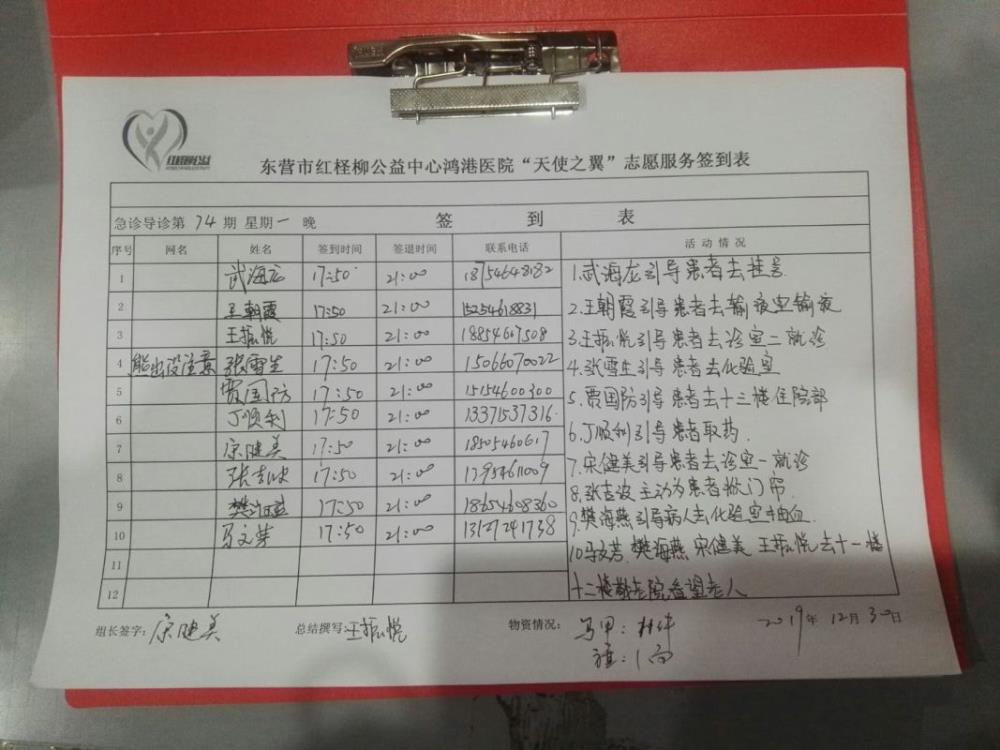 红柽柳公益
东营市红柽柳公益中心鸿港医院“天使之翼”志愿服务签到表
急诊导诊第 74 期 星期一 晚 签 到 表
序号 网名 姓名 签到时间 签退时间 联系电话 活动情况
1 武海龙 17:50 21:00 18754648182
2 王朝霞 17:50 21:00 15254618831
3 王振悦 17:50 21:00 18854607508
4 熊出没注意 张雪生 17:50 21:00 15066070022
5 贾国防 17:50 21:00 15154600300
6 丁顺利 17:50 21:00 13371537316
7 宋健美 17:50 21:00 18505460617
8 张吉波 17:50 21:00 13954611009
9 樊海燕 17:50 21:00 18654608360
10 马文芳 17:50 21:00 13127241738
11
12
1.武海龙引导患者去挂号
2.王朝霞引导患者去输液室输液
3.王振悦引导患者去诊室二就诊
4.张雪生引导患者去化验室
5.贾国防引导患者去十三楼住院部
6.丁顺利引导患者取药.
7.宋健美引导患者去诊室一就诊
8.张吉波主动为患者掀门帘.
9.樊海燕引导病人去化验室抽血.
10.马文芳 樊海燕 宋健美 王振悦去十一楼
十二楼敬老院看望老人
组长签字: 宋健美 总结撰写: 王振悦 物资情况: 马甲: 2019年 12月 30日